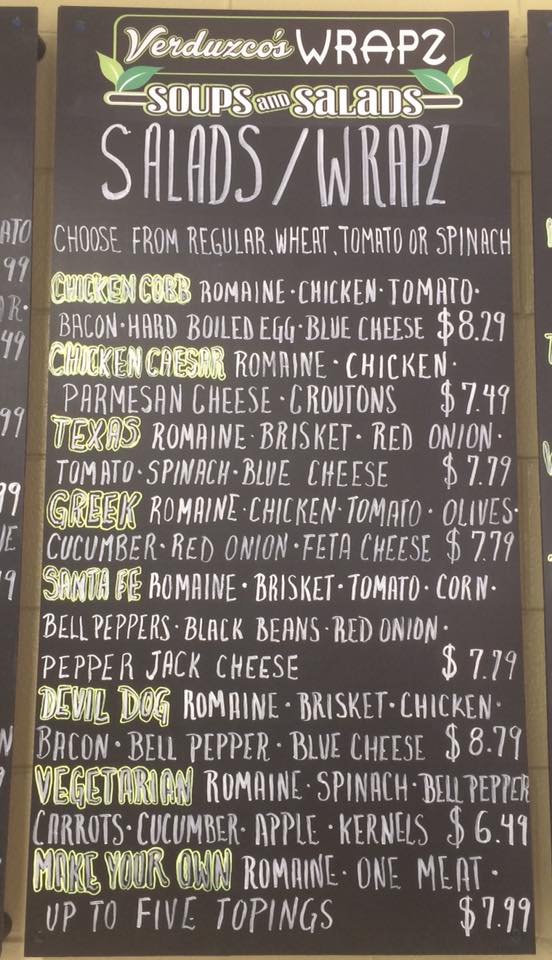 Verduzco's WRAPZ
SOUPS and SALADS
SALADS/WRAPZ
CHOOSE FROM REGULAR, WHEAT, TOMATO OR SPINACH
CHICKEN COBB ROMAINE · CHICKEN · TOMATO ·
BACON · HARD BOILED EGG · BLUE CHEESE $8.29
CHICKEN CAESAR ROMAINE · CHICKEN ·
PARMESAN CHEESE · CROUTONS $7.49
TEXAS ROMAINE · BRISKET · RED ONION ·
TOMATO · SPINACH · BLUE CHEESE $7.79
GREEK ROMAINE · CHICKEN · TOMATO · OLIVES ·
CUCUMBER · RED ONION · FETA CHEESE $7.79
SANTA FE ROMAINE · BRISKET · TOMATO · CORN ·
BELL PEPPERS · BLACK BEANS · RED ONION ·
PEPPER JACK CHEESE $7.79
DEVIL DOG ROMAINE · BRISKET · CHICKEN ·
BACON · BELL PEPPER · BLUE CHEESE $8.79
VEGETARIAN ROMAINE · SPINACH · BELL PEPPER
CARROTS · CUCUMBER · APPLE · KERNELS $6.49
MAKE YOUR OWN ROMAINE · ONE MEAT ·
UP TO FIVE TOPINGS $7.99